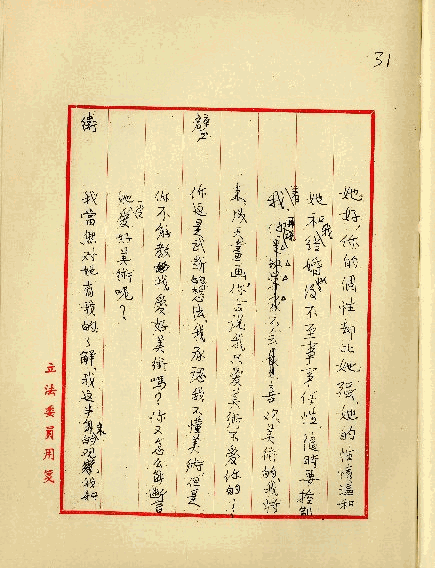 31
她好,你的個性却比她强,她的性情溫和
她和我結婚後不至事事任性,偏時要控制
我,你是 不会喜欢美術的我將
來成天畫画,你会說我只愛美術不愛你的!
璧 你這是武断的想法,我承認我不懂美術,但是
你不能教我愛好美術嗎?你又怎么能断言
她愛好美術呢?
衛 我當然对她有我的了解,我這半年來的观察,我和
立法委員用箋